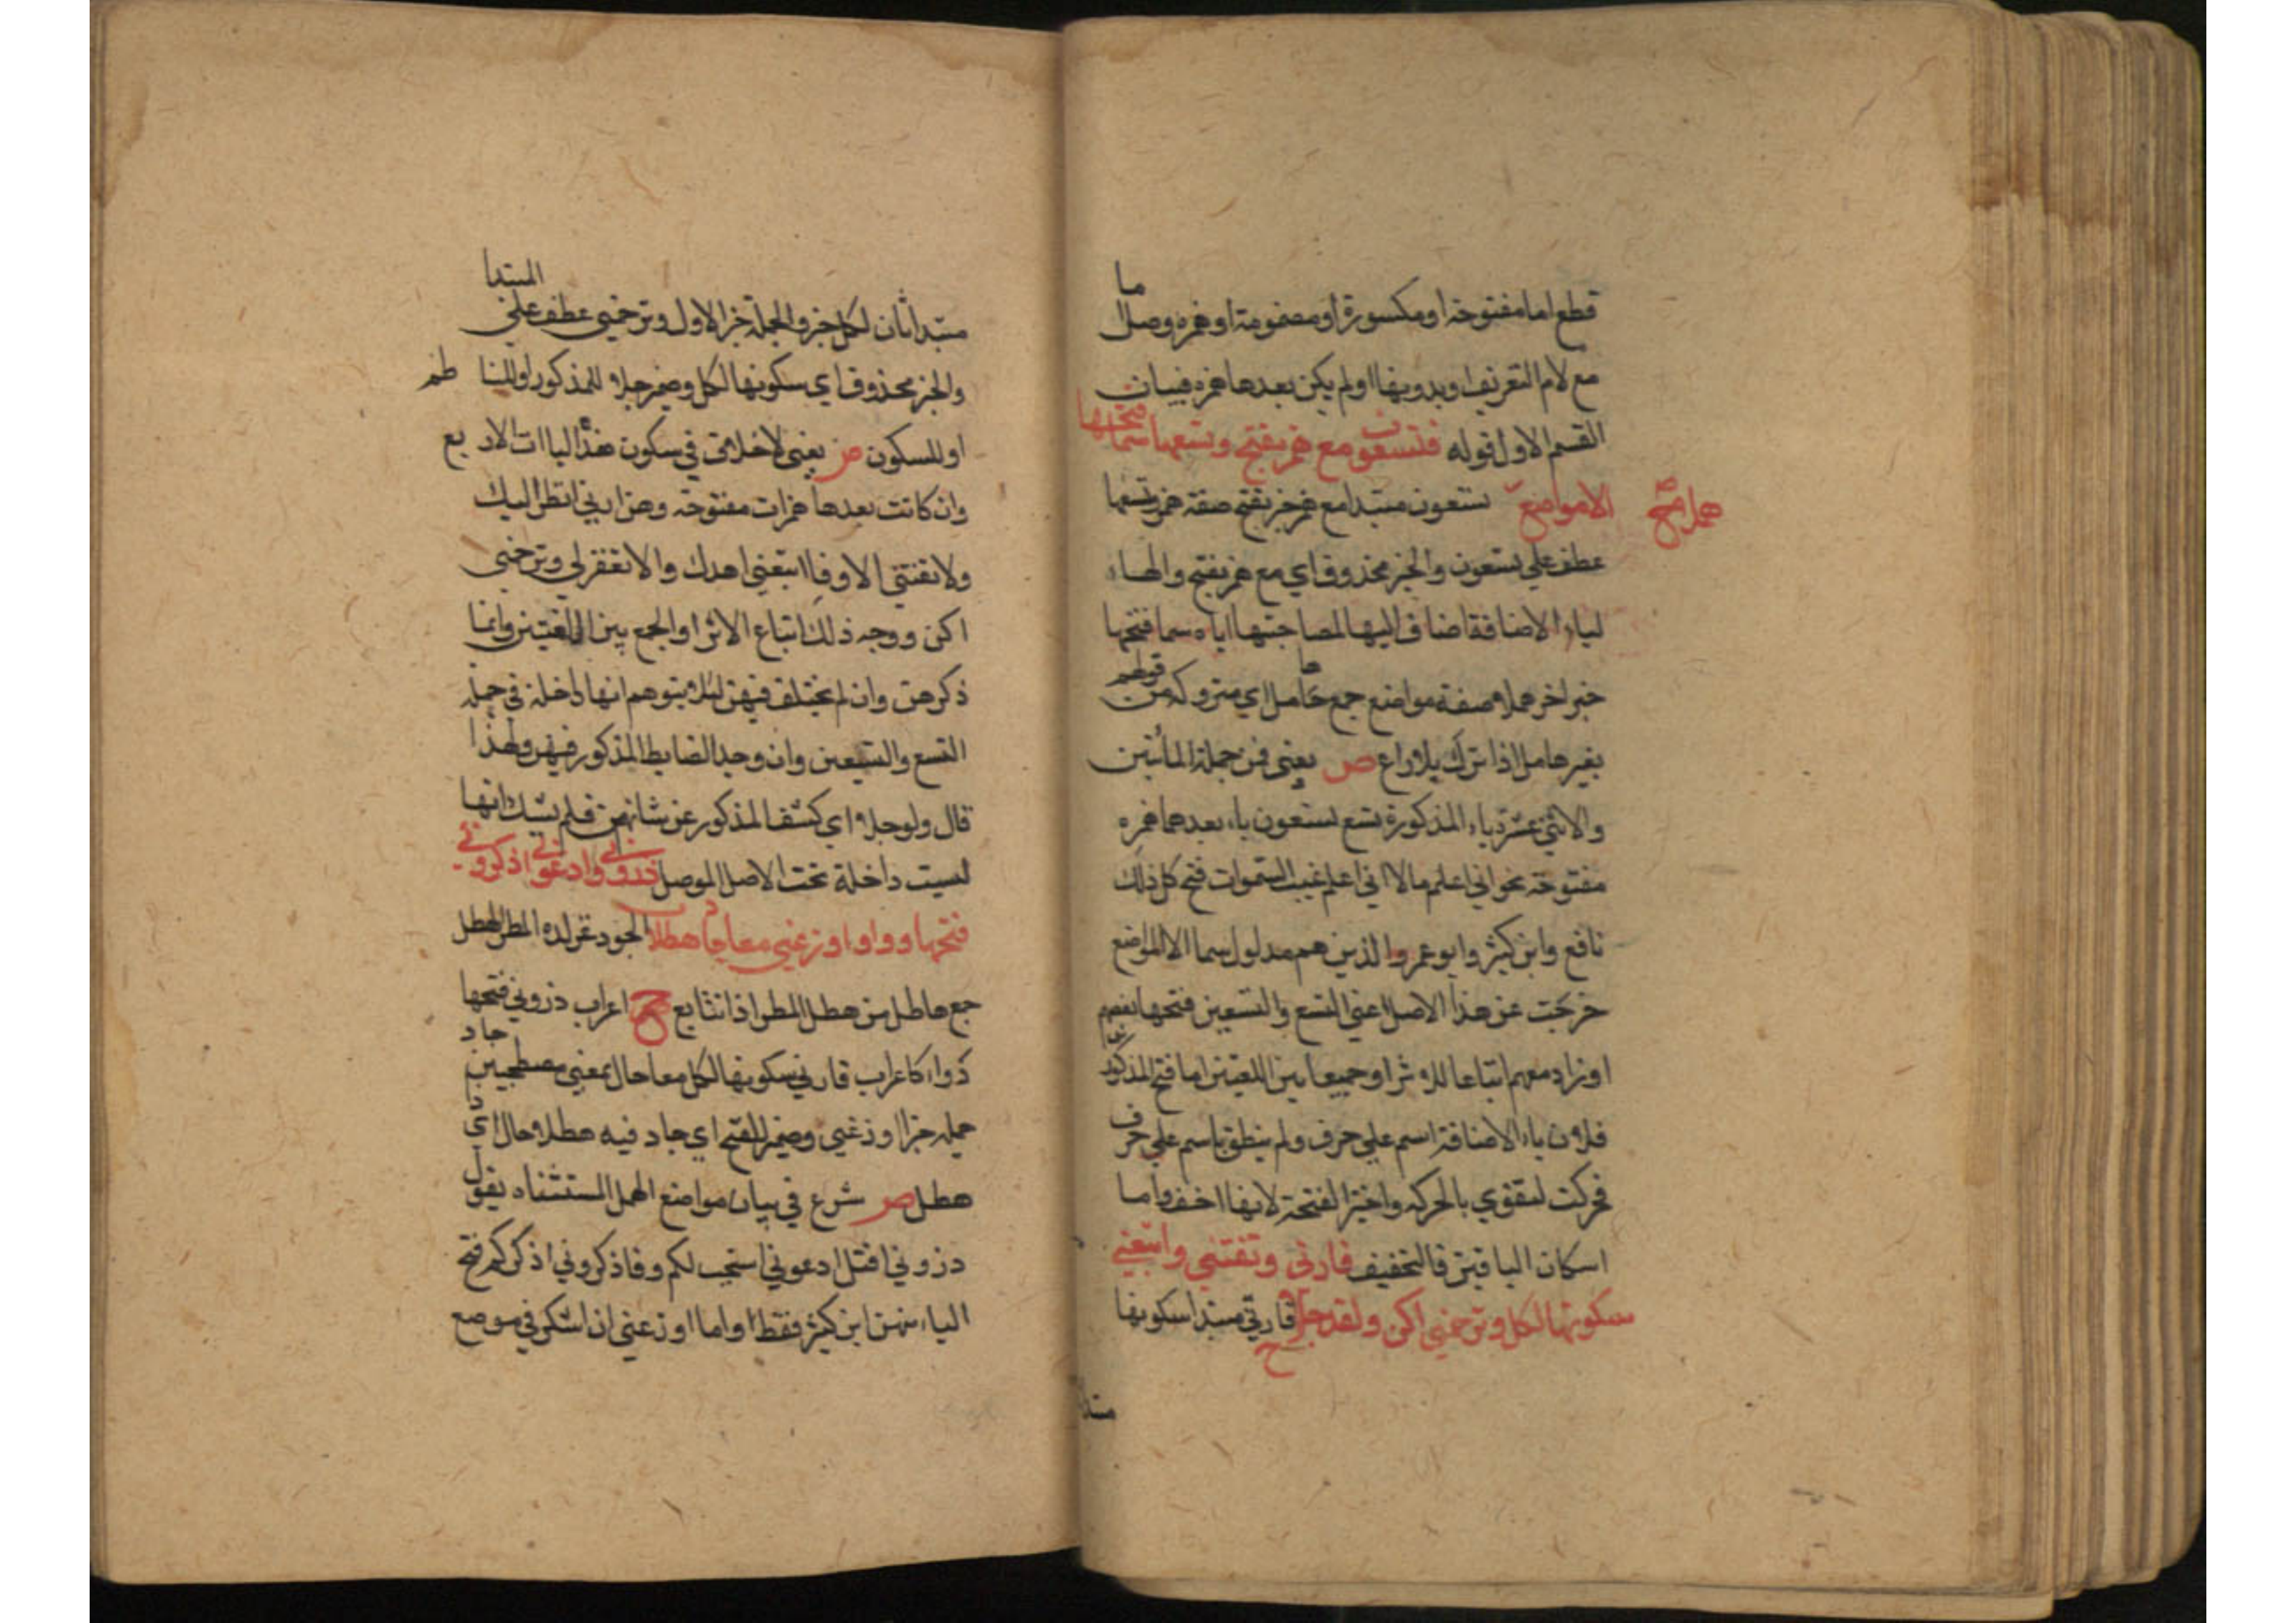 قطع اما مفتوحة او مكسورة او مضمومة او همزه وصل اما
مع لام التعريف او بدونها او لم يكن بعدها همزه فبيان
القسم الاول قوله فتسعون مع همز بفتح وتسعها سما فتحها
الا مواضع هملا تسعون مبتدا مع همز خبر بفتح صفة همز وتسعها
عطف علي تسعون والخبر محذوف اي مع همز بفتح والهاء
لياء الاضافة اضاف اليها لمصاحبتها اياه سما فتحها
خبر اخر هملا صفة مواضع جمع هامل اي متروكه من قولهم
بعير هامل اذا ترك بلا راع ص يعني فمن جملة المأتين
والاثني عشرة ياء المذكورة تسع تسعون ياء بعدها همزه
مفتوحة نحو اني اعلم ما لا اني اعلم غيب السموات فتح كل ذلك
نافع وابن كثير وابو عمرو الذين هم مدلول سما الا المواضع
خرجت عن هذا الاصل اعني التسع والتسعين فتحها بعضهم
او زاد معهم اتباعا للاثر او جمعا بين اللغتين اما فتح المذكور
فلان ياء الاضافة اسم علي حرف ولم ينطق باسم علي حرف
فحركت لتقوي بالحركه واختير الفتحة لانها اخف واما
اسكان الباقين فالتخفيف فارني وتفتني واتبعني
سكونها لكل وترحمني اكن ولقد جلا ح فارني مبتدا سكونها
مبتدا
مبتدا ثان لكل خبر والجملة خبر الاول وترحمني عطف علي المبتدا
والخبر محذوف اي سكونها لكل وضمير جلا للمذكور او للناظم
او للسكون ص يعني لا خلاف في سكون هذه الياات الاربع
وان كانت بعدها همزات مفتوحة وهن ارني انظر اليك
ولا تفتني الا وفا اتبعني اهدك والا تغفر لي وترحمني
اكن ووجه ذلك اتباع الاثر او الجمع بين اللغتين وانما
ذكرهن وان لم يختلف فيهن لئلا يتوهم انها داخلة في جملة
التسع والتسعين وان وجد الضابط المذكور فيهن ولهذا
قال ولو جلا اي كشف المذكور عن شانهن فلم يشك انها
ليست داخلة تحت الاصل الموصل ذروني وادعوني اذكروني
فتحها دواء واوزعني معا جاد هطلا الجود غزارة المطر الهطل
جمع هاطل من هطل المطر اذا تتابع ح اعراب ذروني فتحها
دواء كاعراب فارني سكونها لكل معا حال بمعني مصطحبين جاد
جمله خبر اوزعني وضمير للفتح اي جاد فيه هطلا حال اي ذا
هطل ص شرع في بيان مواضع الهمل المستثناه يقول
ذروني اقتل ادعوني استجب لكم وفاذكروني اذكركم فتح
الياء منهن ابن كثير فقط واما اوزعني ان اشكر في موضع